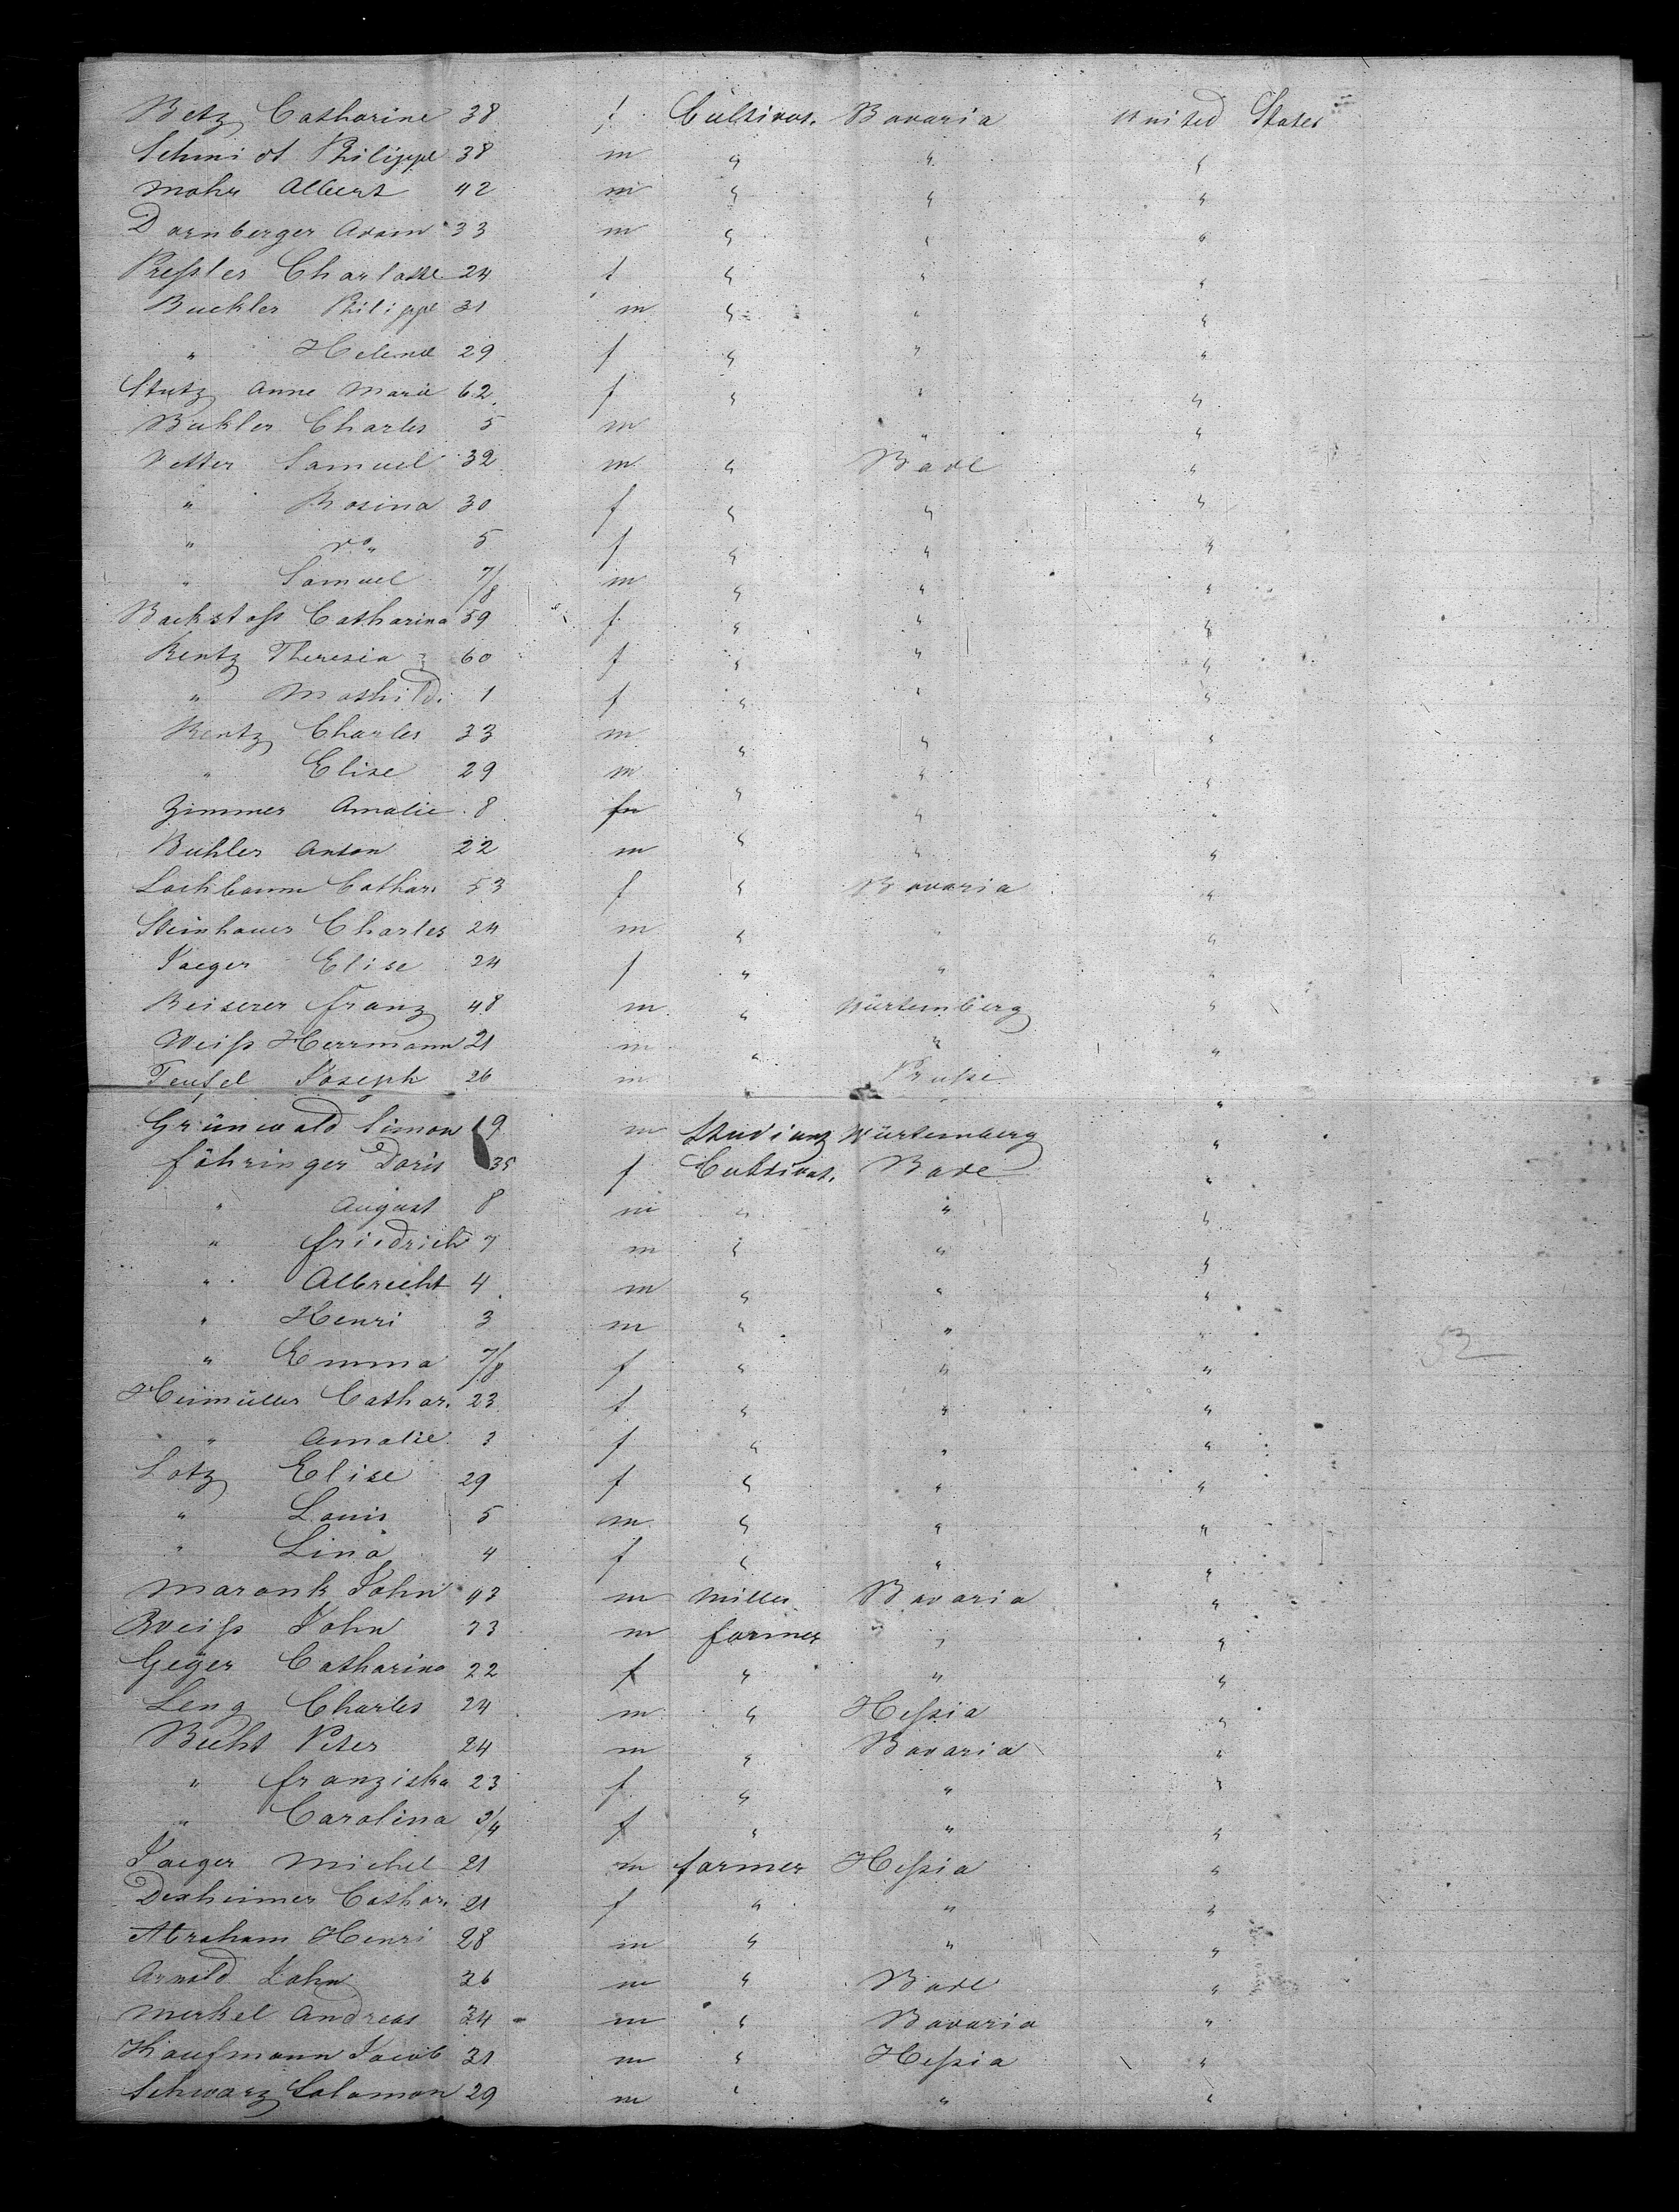 Betz Catharine 38 f Cultivat. Bavaria United States
Schmidt Philippe 38 m " " "
Mohr Albert 42 m " " "
Dornberger Adam 33 m " " "
Preßler Charlotte 24 f " " "
Buckler Philippe 31 m " " "
" Helene 29 f " " "
Stutz Anne Marie 62 f " " "
Bukler Charles 5 m " "
Vetter Samuel 32 m " Bade "
" Rosina 30 f " " "
" do 5 f " " "
" Samuel 7/8 m " " "
Backstoß Catharina 59 f " " "
Rentz Theresia 60 f " " "
" Mathild. 1 f " " "
Rentz Charles 33 m " " "
" Elise 29 m " " "
Zimmer Amalie 8 fm " " "
Buhler Anton 22 m " " "
Lochbaum Cathar. 53 f " Bavaria "
Steinhauer Charles 24 m " " "
Jaeger Elise 24 f " " "
Beiserer Franz 48 m " Würtemberg "
Weiß Herrmann 21 m " " "
Teufel Joseph 26 m " Pruße "
Grünwald Simon 19 m Studianz Würtemberg "
Föhringer Doris 35 f Cultivat. Bade "
" August 8 m " " "
" Friedrich 7 m " " "
" Albrecht 4 m " " "
" Henri 3 m " " "
" Emma 7/8 f " " "
Heimüller Cathar. 23 f " " "
" Amalie 3 f " " "
Lotz Elise 29 f " " "
" Louis 5 m " " "
" Lina 4 f " " "
Marank John 43 m Miller Bavaria "
Weiß John 33 m farmer " "
Geger Catharina 22 f " " "
Leng Charles 24 m " Heßia "
Becht Peter 24 m " Bavaria "
" Franziska 23 f " " "
" Carolina 3/4 f " " "
Jaeger Michel 21 m farmer Heßia "
Dexheimer Cathar. 21 f " " "
Abraham Henri 28 m " " "
Arnold John 36 m " Bade "
Merkel Andreas 34 m " Bavaria "
Kaufmann Jacob 31 m " Heßia "
Schwarz Salomon 29 m " " "